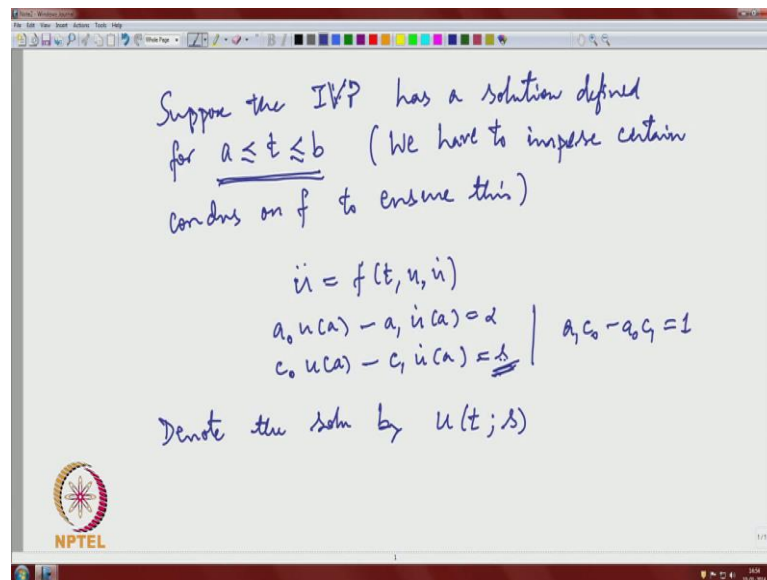 Note2 - Windows Journal
File Edit View Insert Actions Tools Help
Whole Page
Suppose the IVP has a solution defined
for a ≤ t ≤ b (We have to impose certain
condns on f to ensure this)
ü = f(t, u, u̇)
a₀ u(a) - a₁ u̇(a) = α
c₀ u(a) - c₁ u̇(a) = s | a₁c₀ - a₀c₁ = 1
Denote the soln by u(t; s)
NPTEL
1
1/1